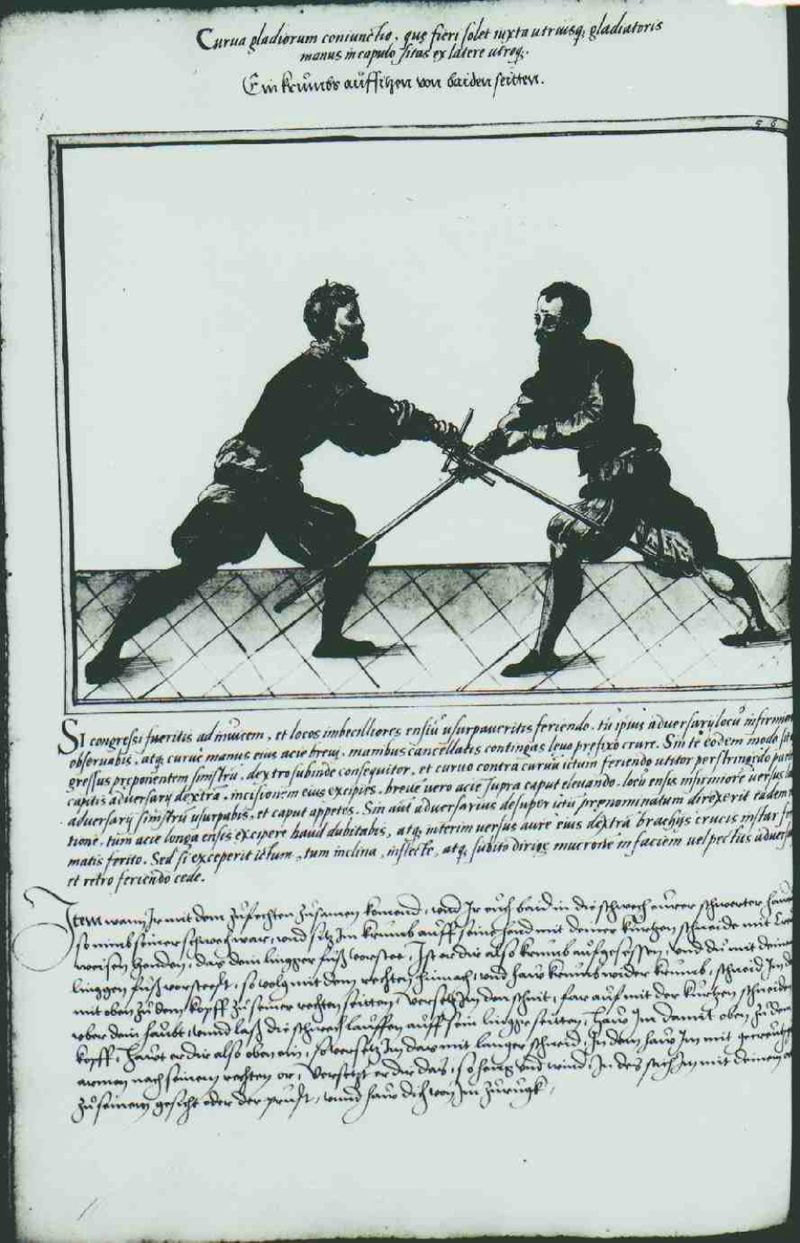 Curua gladiorum coniunctio, quę fieri solet iuxta utriusq; gladiatoris
manus in capulo sitas ex latere utroq;.
Ein krumbs auffsitzen von baiden seitten.
56
SI congressi fueritis ad inuicem, et locos imbecilliores ensiū usurpaueritis feriendo, tū ipsius aduersarij locū infirmio
obseruabis, atq; curue manus eius acie breui, manibus cancellatis contingas leuo prefixo crure. Sin te eodem modo sit
gressus preponentem sinistrū, dextro subinde consequitor, et curuo contra curuū ictum feriendo utitor perstringēdo
capitis aduersarij dextrā, incisionem eius excipies, breue uero acie supra caput eleuando, locū ensis infirmiorē uersus
aduersarij sinistrū usurpabis, et caput appetes. Sin aūt aduersarius desuper ictū prenominatum direxerit eadem
tione, tum acie longa ensis excipere haud dubitabis, atq; interim uersus aurē eius dextrā brachijs crucis instar
matis ferito. Sed si exceperit ictum, tum inclina, inflecte, atq; subito diriges mucronē in faciem uel pectus aduersa
et retro feriendo cede.
Item wann Ir mit dem zufechten zusamen komend, und Ir euch baid in die schwech eurer schwerter
so nimb seiner schwech war, und sitz Im krumb auff sein hend mit deiner kurtzen schneide mit
weisen henden, das dein lingger fuß vorstee, Ist er dir also krumb aufgesessen, und du mit deinem
linggen fuß vorsteest, so volg mit dem rechten hinnach, und haw krumb wider krumb, schneid Im
mit oben zu dem kopff zu seiner rechten seitten, Versetz Im den schnit, far auf mit der kurtzen schneiden
ober dein haubt, unnd laß die schwech lauffen auff sein lingge seitten, haw Im damit oben zu dem
kopff, Hawt er dir also oben ein, so versetz Im das mit langer schneid, In dem haw Im mit
armen nach seinem rechten or, Versetzt er dir das, so heng und wind, In des stich Im mit deinem
zu seinem gesicht oder der prust, unnd haw dich von Im zurugk.